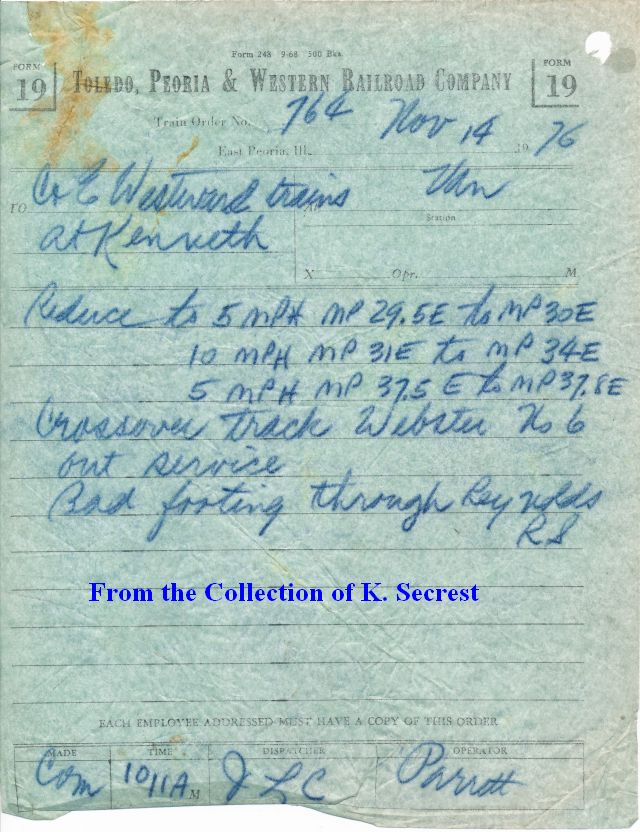 Form 248 9-68 500 Bks.
FORM 19
TOLEDO, PEORIA & WESTERN RAILROAD COMPANY
FORM 19
Train Order No. 764 Nov 14 1976
East Peoria, Ill.
TO C&E Westward trains At
at Kenneth
Station
X Opr. M
Reduce to 5 MPH MP 29.5E to MP 30E
10 MPH MP 31E to MP 34E
5 MPH MP 37.5 E to MP 37.8E
Crossover track Webster No 6
out service
Bad footing through Reynolds
RS
From the Collection of K. Secrest
EACH EMPLOYEE ADDRESSED MUST HAVE A COPY OF THIS ORDER
MADE TIME DISPATCHER OPERATOR
Com 1011A M JLC Parrott